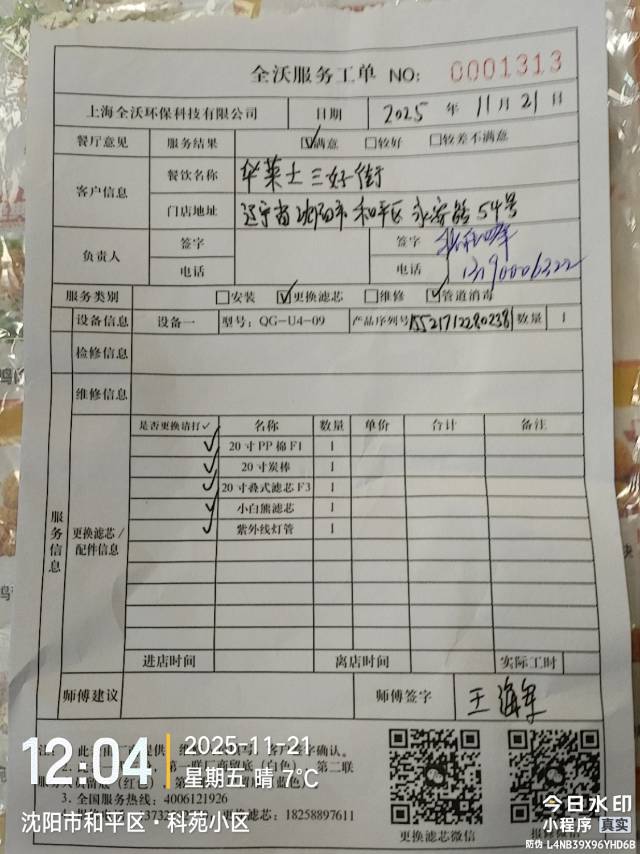 全沃服务工单 NO: 0001313
上海全沃环保科技有限公司 日期 2025 年 11 月 21 日
餐厅意见 服务结果 ☑满意 □较好 □较差不满意
客户信息 餐饮名称 华莱士三好街
门店地址 辽宁省沈阳市和平区永安路54号
负责人 签字 签字
电话 电话
服务类别 □安装 ☑更换滤芯 □维修 ☑管道消毒
设备信息 设备一 型号: QG-U4-09 产品序列号 数量 1
检修信息
维修信息
服务信息
更换滤芯/配件信息
是否更换请打✓ 名称 数量 单价 合计 备注
✓ 20寸PP棉F1 1
✓ 20寸炭棒 1
✓ 20寸叠式滤芯F3 1
✓ 小白熊滤芯 1
✓ 紫外线灯管 1
进店时间 离店时间 实际工时
师傅建议 师傅签字 王海军
签字确认。
第一联厂商留底(白色)、第二联
3. 全国服务热线: 4006121926
更换滤芯: 18258897611
更换滤芯微信
12:04
2025-11-21
星期五 晴 7℃
沈阳市和平区·科苑小区
今日水印
小程序 真实
防伪 L4NB39X96YHD6B